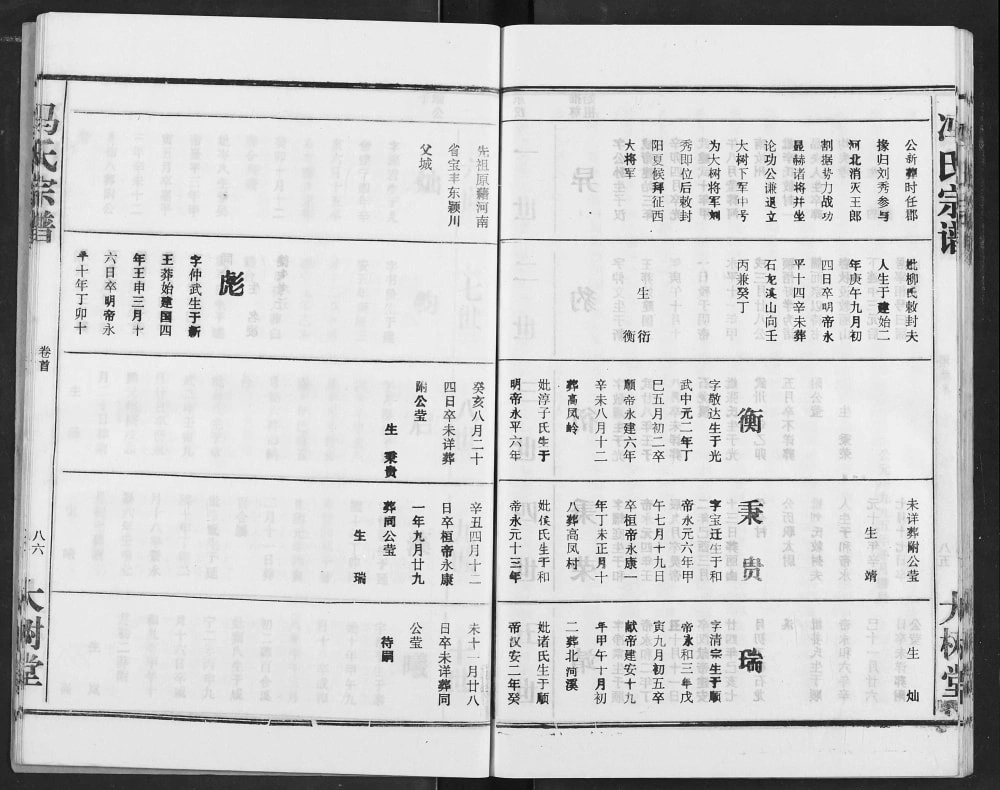 冯氏宗谱
大树堂
公新莽时任郡
掾归刘秀参与
河北消灭王郎
割据势力战功
显赫诸将并坐
论功公谦退立
大树下军中号
为大树将军刘
秀即位后敕封
阳夏侯拜征西
大将军
妣柳氏敕封夫
人生于建始二
年庚午九月初
四日卒明帝永
平十四辛未葬
石龙溪山向壬
丙兼癸丁
生 衍
衡
衡
字敬达生于光
武中元二年丁
巳五月初二卒
顺帝永建六年
辛未八月十二
葬高凤岭
妣淳于氏生于
明帝永平六年
未详葬附公莹
生 靖
秉贵
字宝迁生于和
帝永元六年甲
午七月十九日
卒桓帝永康一
年丁末正月十
八葬高凤村
妣侯氏生于和
帝永元十三年
公莹生 灿
瑞
字清宗生于顺
帝永和三年戊
寅九月初五卒
献帝建安十九
年甲午十月初
二葬北河溪
妣诸氏生于顺
帝汉安二年癸
先祖原藉河南
省宝丰东颍川
父城
彪
字仲武生于新
王莽始建国四
年壬申三月十
六日卒明帝永
平十年丁卯十
癸亥八月二十
四日卒未详葬
附公莹
生 秉贵
辛丑四月十二
日卒桓帝永康
一年九月廿九
葬同公莹
生 瑞
未十一月廿八
日卒未详葬同
公莹
待嗣
冯氏宗谱
卷首
八六
大树堂